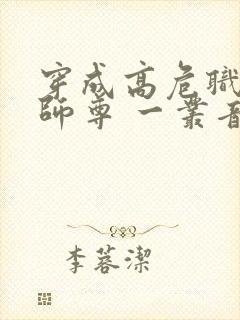 穿成高危職
師尊 一叢音
李蓉潔